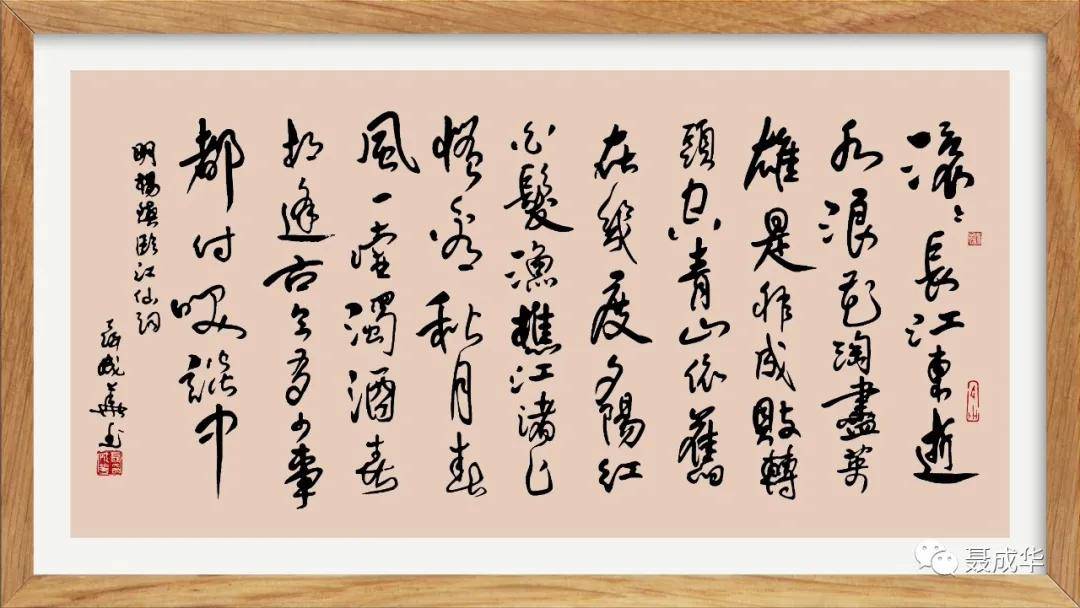 滾〻長江東逝
水浪花淘盡英
雄是非成敗轉
頭空青山依舊
在幾度夕陽紅
白髮漁樵江渚上
慣看秋月春
風一壺濁酒喜
相逢古今多少事
都付笑談中
明楊慎臨江仙詞
聶成華書
聂成华